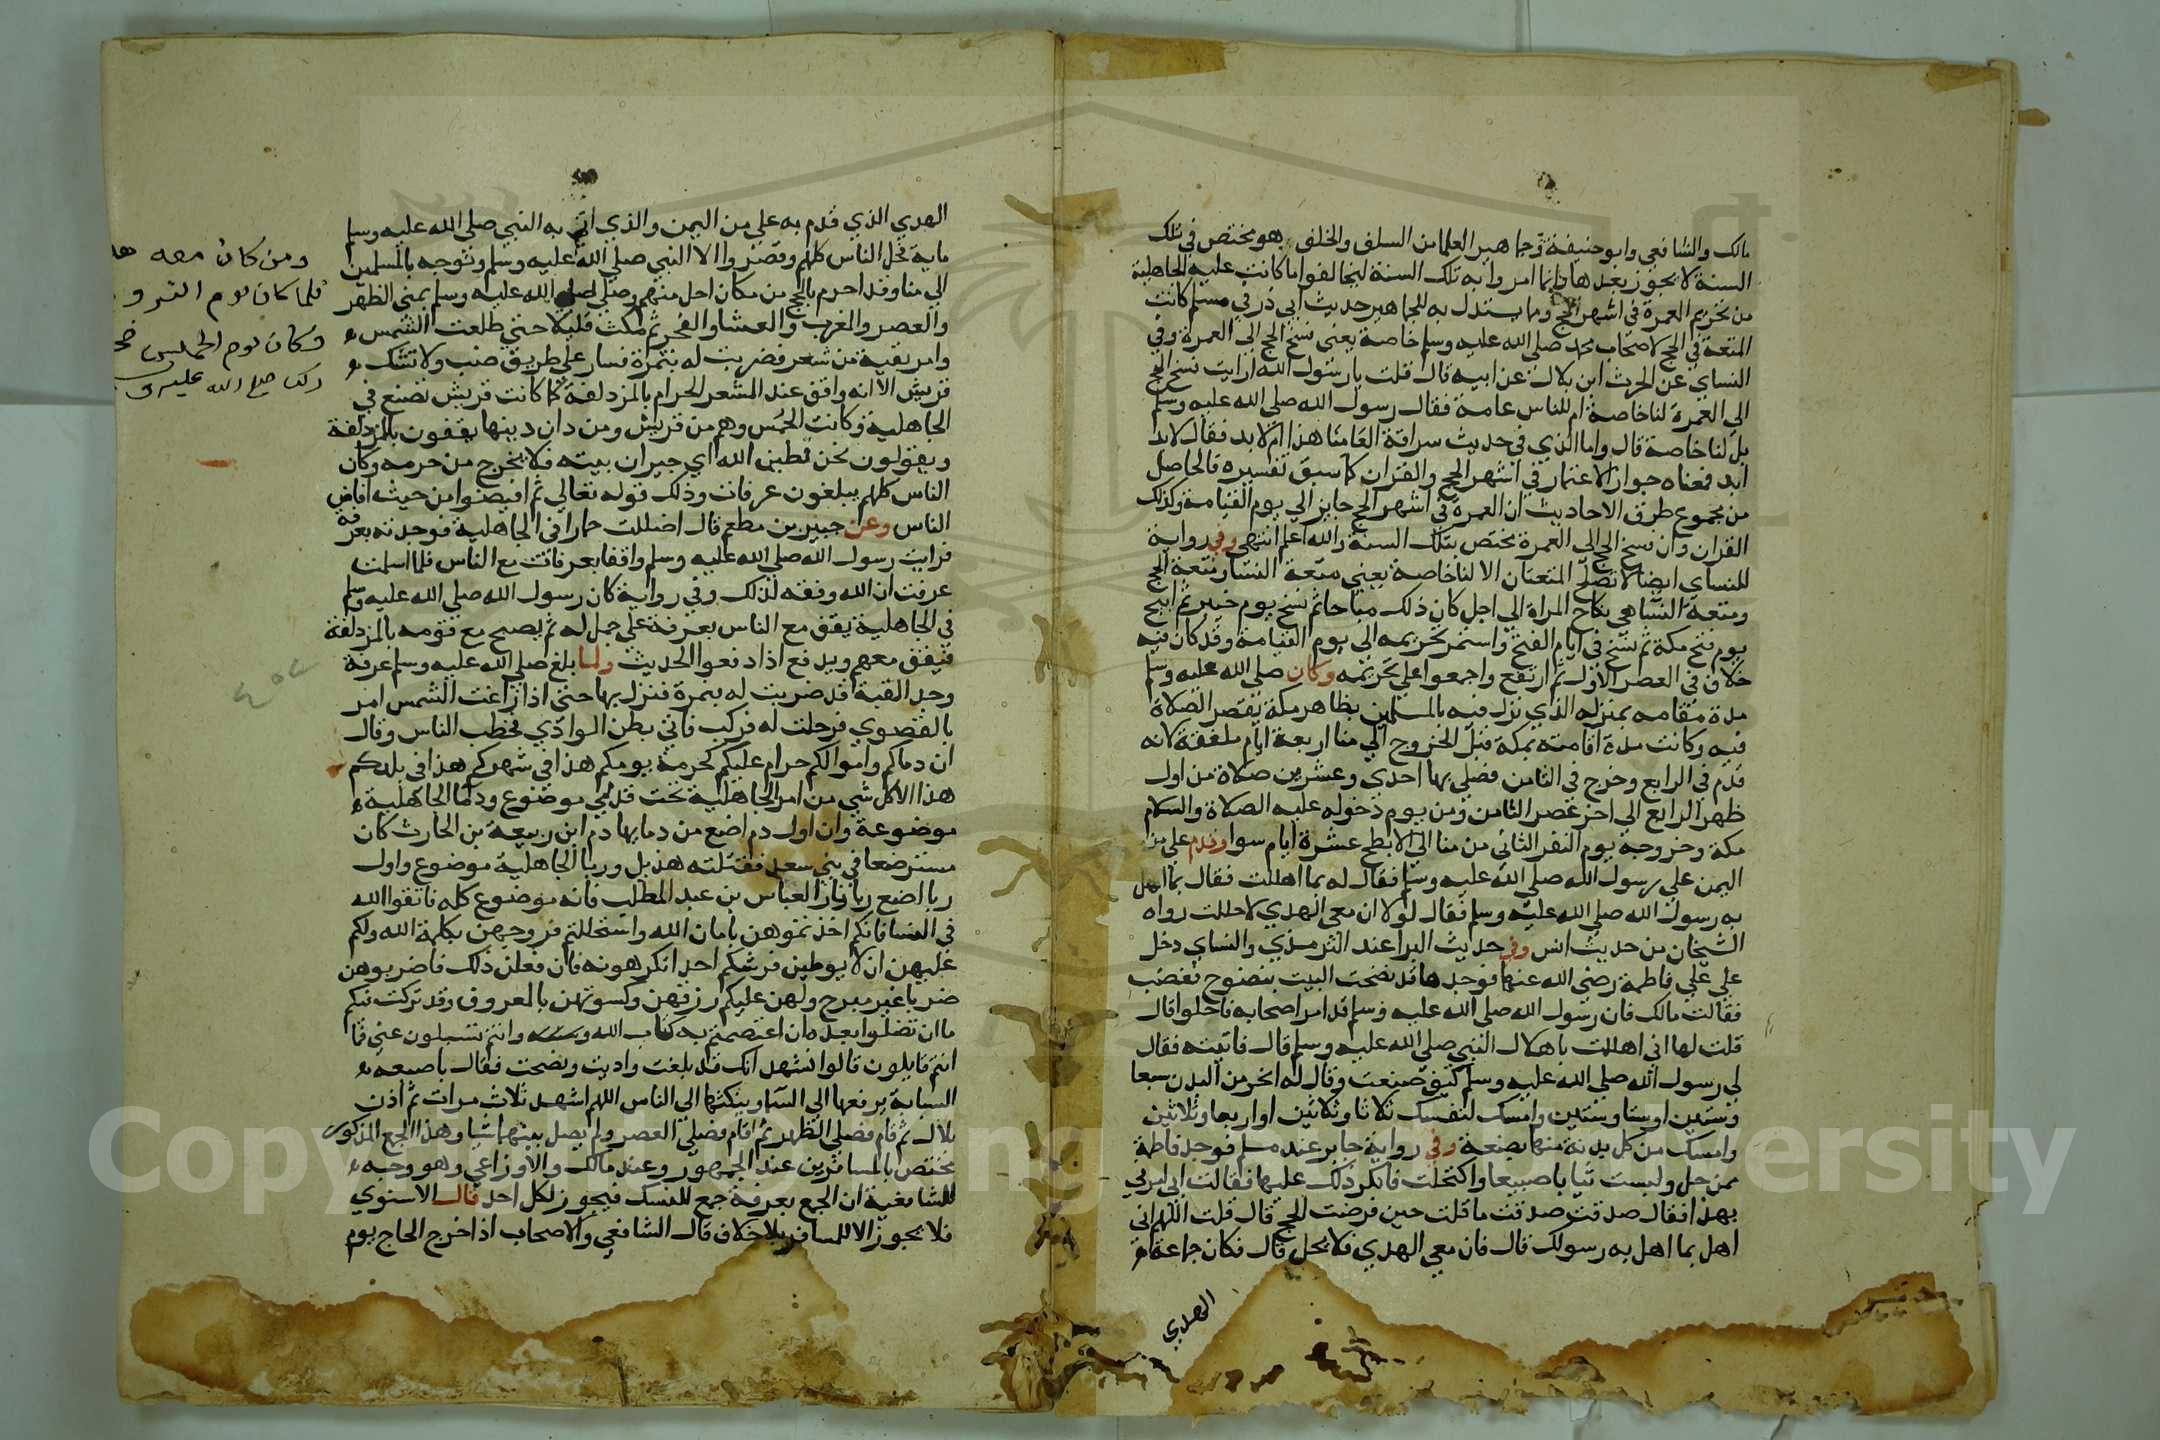 مالك والشافعي وابو حنيفة وجماهير العلما من السلف والخلف هو مختص في تلك
السنة لا يجوز بعدها وانما امروا به تلك السنة ليخالفوا ما كانت عليه الجاهلية
من تحريم العمرة في اشهر الحج وما يستدل به للجماهير حديث ابي ذر في مسلم كانت
المتعة في الحج لاصحاب محمد صلى الله عليه وسلم خاصة يعني فسخ الحج الى العمرة وفي
النساي عن الحرث ابن بلال عن ابيه قال قلت يارسول الله ارايت فسخ الحج
الي العمرة لنا خاصة ام للناس عامة فقال رسول الله صلى الله عليه وسلم
بل لنا خاصة قال واما الذي في حديث سراقة العامنا هذا ام لابد فقال لابد
ابد فمعناه جواز الاعتمار في اشهر الحج والقران كما سبق تفسيره فالحاصل
من مجموع طرق الاحاديث ان العمرة في اشهر الحج جايز الي يوم القيامة وكذلك
القران وان فسخ الحج الى العمرة مختص بتلك السنة والله اعلم انتهى وفي رواية
للنساي ايضا لا تصلح المتعتان الا لنا خاصة يعني متعة النسا ومتعة الحج
ومتعة النسا هي نكاح المراة الي اجل كان ذلك مباحا ثم نسخ يوم خيبر ثم ابيح
يوم فتح مكة ثم نسخ في ايام الفتح واستمر تحريمه الى يوم القيامة وقد كان فيه
خلاف في العصر الاول ثم ارتفع واجمعوا علي تحريمه وكان صلى الله عليه وسلم
مدة مقامه بمنزله الذي نزل فيه بالمسلمين بظاهر مكة يقصر الصلاة
فيه وكانت مدة اقامته بمكة قبل الخروج الي منا اربعة ايام ملفقة لانه
قدم في الرابع وخرج في الثامن فصلي بها احدي وعشرين صلاة من اول
ظهر الرابع الي اخر عصر الثامن ومن يوم دخوله عليه الصلاة والسلام
مكة وخروجه يوم النفر الثاني من منا الي الابطح عشرة ايام سوا وقدم علي من
اليمن علي رسول الله صلى الله عليه وسلم فقال له بما اهللت فقال بما اهل
به رسول الله صلى الله عليه وسلم فقال لولا ان معي الهدي لاحللت رواه
الشيخان من حديث انس وفي حديث البرا عند الترمذي والنساي دخل
علي علي فاطمة رضي الله عنها فوجدها قد نضحت البيت بنضوح فغضب
فقالت مالك فان رسول الله صلى الله عليه وسلم قد امر اصحابه فاحلوا قال
قلت لها اني اهللت باهلال النبي صلى الله عليه وسلم قال فاتيته فقال
لي رسول الله صلى الله عليه وسلم كيف صنعت وقال له انحر من البدن سبعا
وستين او ستا وستين وامسك لنفسك ثلاثا وثلاثين او اربعا وثلاثين
وامسك من كل بدنة منها بضعة وفي رواية جابر عند مسلم فوجد فاطمة
ممن حل ولبست ثيابا صبيغا واكتحلت فانكر ذلك عليها فقالت ابي امرني
بهذا فقال صدقت صدقت ما قلت حين فرضت الحج قال قلت اللهم اني
اهل بما اهل به رسولك قال فان معي الهدي فلا تحل قال فكان جماعة
الهدي
الهدي الذي قدم به علي من اليمن والذي اتي به النبي صلى الله عليه وسلم
ماية فحل الناس كلهم وقصروا الا النبي صلى الله عليه وسلم وتوجه بالمسلمين
الي منا وقد احرم بالحج من مكان احل منهم وصلي صلى الله عليه وسلم بمنى الظهر
والعصر والمغرب والعشا والفجر ثم مكث قليلا حتي طلعت الشمس
وامر بقبة من شعر فضربت له بنمرة فسار علي طريق ضب ولا تشك
قريش الا انه واقف عند المشعر الحرام بالمزدلفة كما كانت قريش تصنع في
الجاهلية وكانت الحمس وهم من قريش ومن دان دينها يقفون بالمزدلفة
ويقولون نحن قطين الله اي جيران بيته فلا نخرج من حرمه وكان
الناس كلهم يبلغون عرفات وذلك قوله تعالي ثم افيضوا من حيث افاض
الناس وعن جبير بن مطعم قال اضللت حمارا في الجاهلية فوجدته بعرفة
فرايت رسول الله صلى الله عليه وسلم واقفا بعرفات مع الناس فلما اسلمت
عرفت ان الله وفقه لذلك وفي رواية كان رسول الله صلى الله عليه وسلم
في الجاهلية يقف مع الناس بعرفة علي جمل له ثم يصبح مع قومه بالمزدلفة
فيقف معهم ويدفع اذا دفعوا الحديث ولما بلغ صلى الله عليه وسلم عرفة
وجد القبة قد ضربت له بنمرة فنزل بها حتى اذا زاغت الشمس امر
بالقصوي فرحلت له فركب فاتي بطن الوادي فخطب الناس وقال
ان دماكم واموالكم حرام عليكم كحرمة يومكم هذا في شهركم هذا في بلدكم
هذا الا كل شي من امر الجاهلية تحت قدمي موضوع ودما الجاهلية
موضوعة وان اول دم اضع من دمايها دم ابن ربيعة بن الحارث كان
مسترضعا في بني سعد فقتلته هذيل وربا الجاهلية موضوع واول
ربا اضع ربانا ربا العباس بن عبد المطلب فانه موضوع كله فاتقوا الله
في النسا فانكم اخذتموهن بامان الله واستحللتم فروجهن بكلمة الله ولكم
عليهن ان لا يوطين فرشكم احدا تكرهونه فان فعلن ذلك فاضربوهن
ضربا غير مبرح ولهن عليكم رزقهن وكسوتهن بالمعروف وقد تركت فيكم
ما ان تضلوا بعده ان اعتصمتم به كتاب الله وانتم تسيلون عني فما
انتم قايلون قالوا نشهد انك قد بلغت واديت ونصحت فقال باصبعه
السبابة يرفعها الى السما وينكتها الى الناس اللهم اشهد ثلاث مرات ثم اذن
بلال ثم قام فصلي الظهر ثم اقام فصلي العصر ولم يصل بينهما شيا وهذا الجمع المذكور
يختص بالمسافرين عند الجمهور وعند مالك والاوزاعي وهو وجه
للشافعية ان الجمع بعرفة جمع للنسك فيجوز لكل احد قال الاسنوي
فلا يجوز الا للمسافر بلا خلاف قال الشافعي والاصحاب اذا خرج الحاج يوم
ومن كان معه
فلما كان يوم الترو
وكان يوم الخميس
ركب صلى الله عليه و
Copy King University